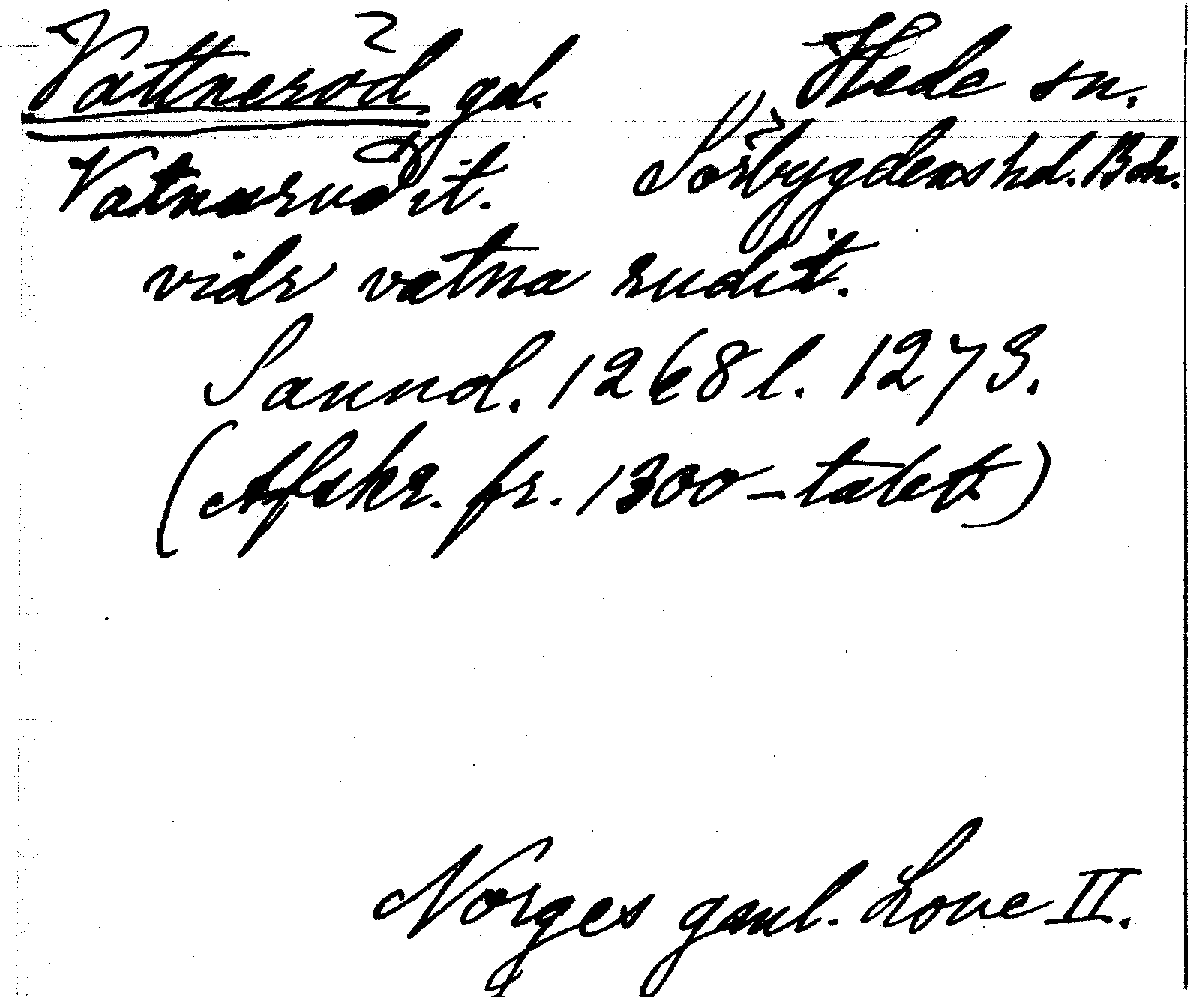 Vattneröd gd. Hede sn.
Vatnarudit. Sörbygdens hd. Boh.
vidr vatna rudit.
Sannol. 1268 l. 1273.
(Afskr. fr. 1300-talet)
Norges gaml. Love II.